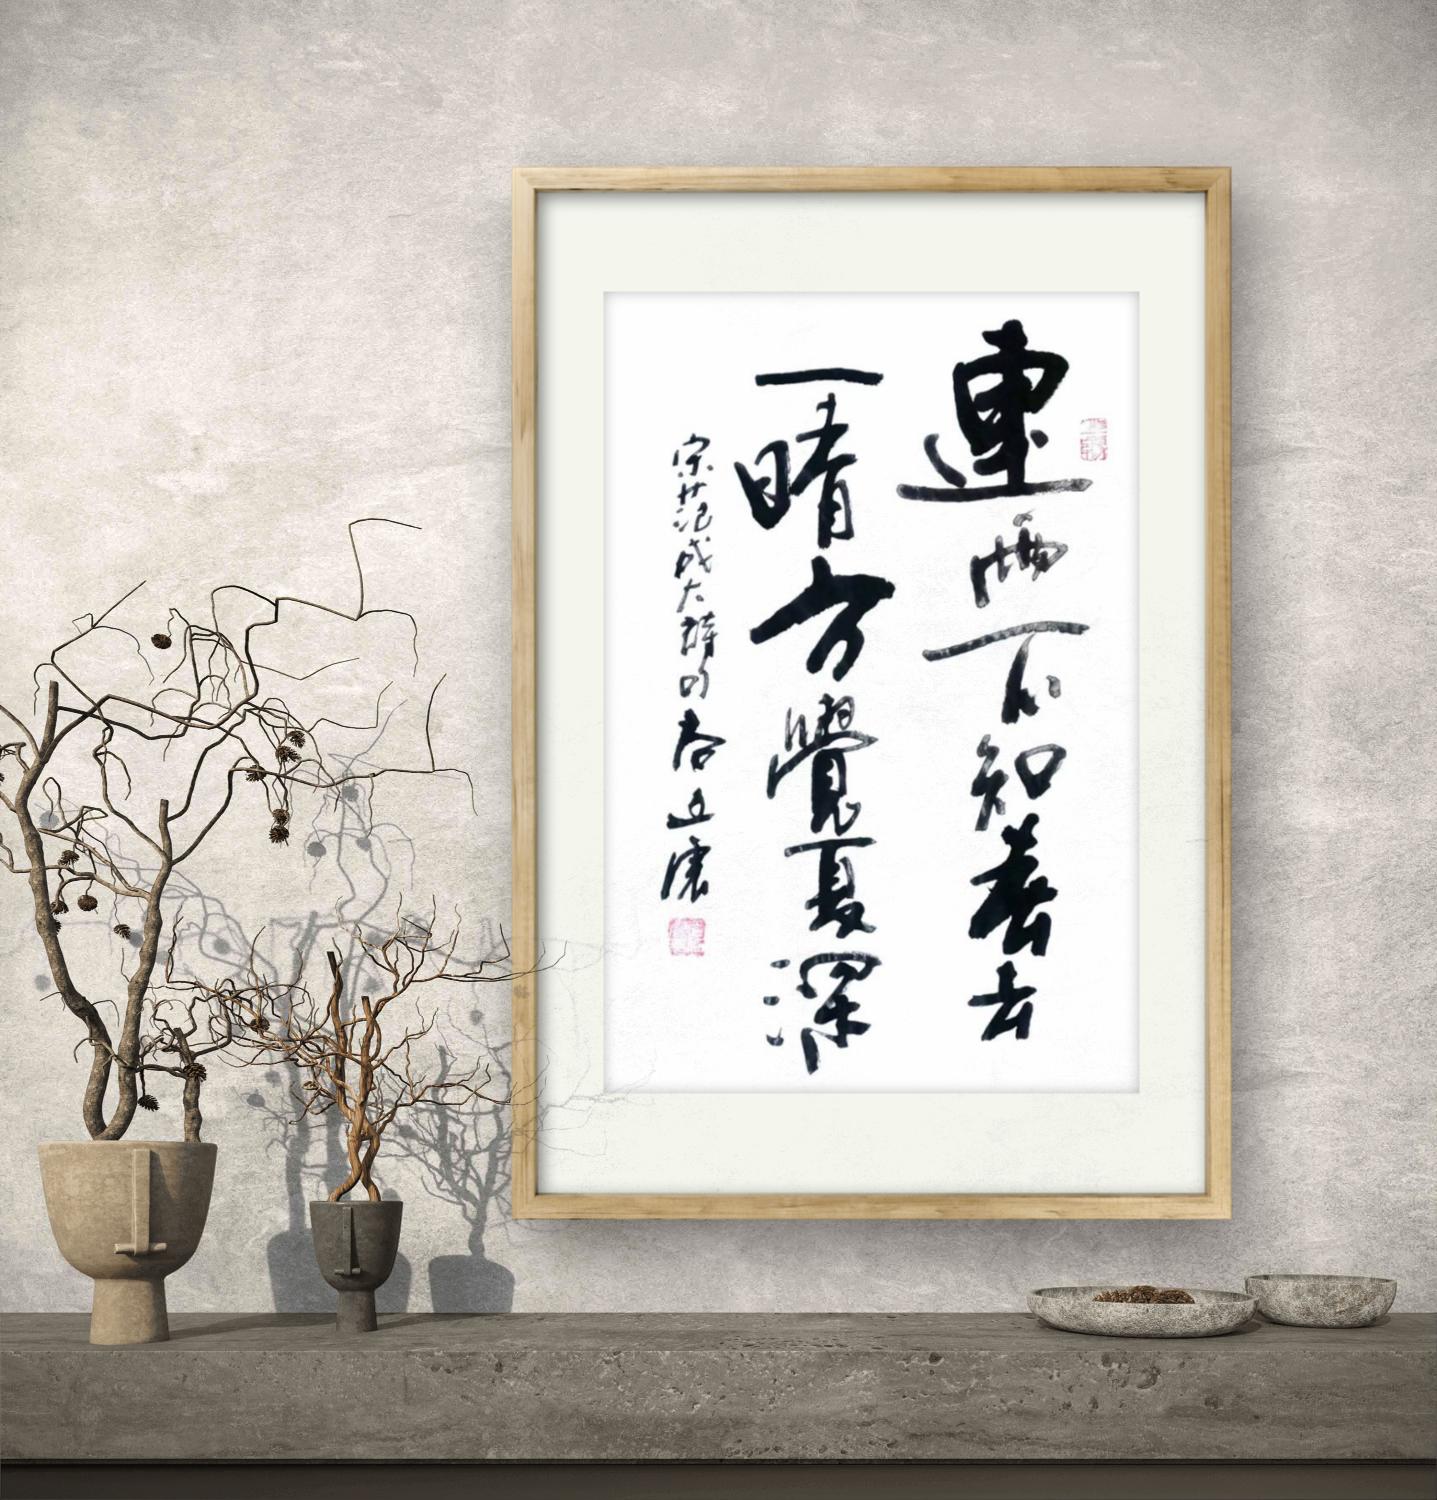 連雨不知春去
一晴方覺夏深
宋范成大詩句